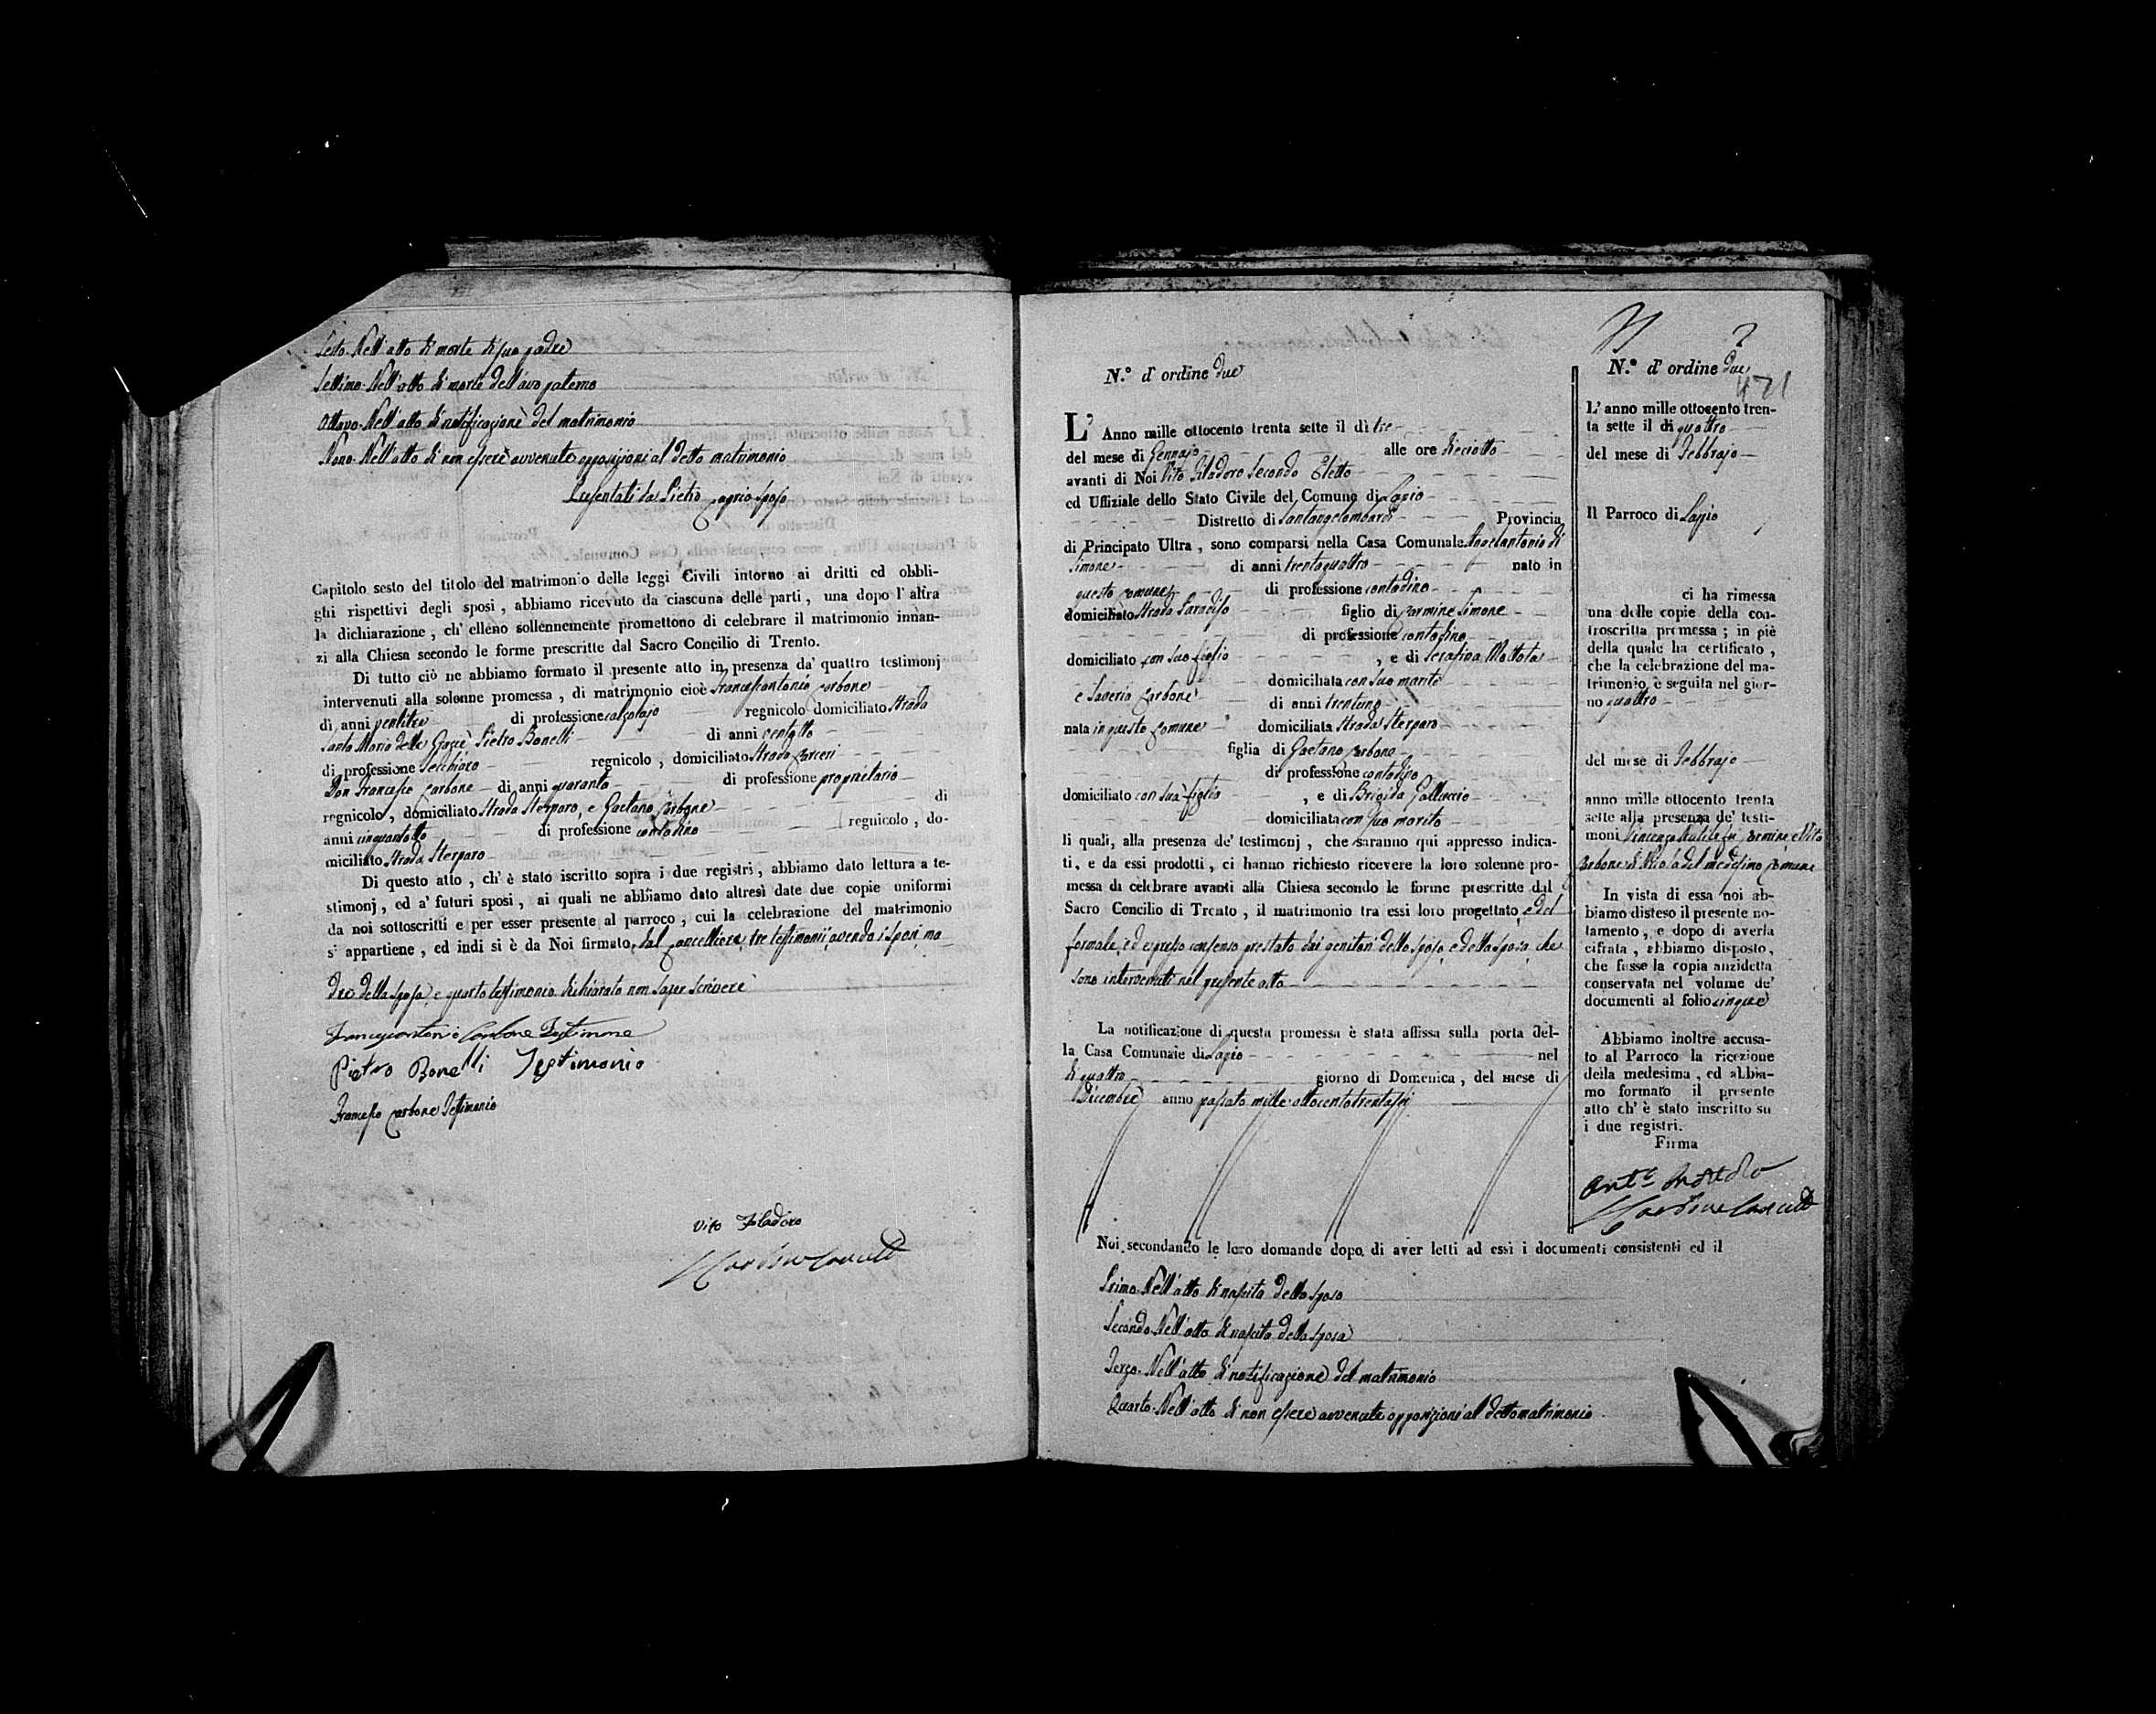 Sesto Nell'atto di morte di suo padre
Settimo Nell'atto di morte dell'avo paterno
Ottavo Nell'atto di notificazione del matrimonio
Nono Nell'atto di non essere avvenute opposizioni al detto matrimonio
Presentati da Pietro
Capitolo sesto del titolo del matrimonio delle leggi Civili intorno ai dritti ed obbli-
ghi rispettivi degli sposi, abbiamo ricevuto da ciascuna delle parti, una dopo l'altra
la dichiarazione, ch'elleno sollennemente promettono di celebrare il matrimonio innan-
zi alla Chiesa secondo le forme prescritte dal Sacro Concilio di Trento.
Di tutto ciò ne abbiamo formato il presente atto in presenza da' quattro testimonj
intervenuti alla solenne promessa, di matrimonio cioè Francescantonio Carbone
di anni ventitre di professione calzolajo regnicolo domiciliato Strada
Santa Maria delle Grazie Pietro Bonelli di anni ventotto
di professione regnicolo, domiciliato Strada Carceri
Don Francesco Carbone di anni quaranta di professione proprietario
regnicolo, domiciliato Strada Sterparo, e Gaetano Carbone di
anni cinquantotto di professione contadino regnicolo, do-
miciliato Strada Sterparo
Di questo atto, ch'è stato iscritto sopra i due registri, abbiamo dato lettura a te-
stimonj, ed a' futuri sposi, ai quali ne abbiamo dato altresì date due copie uniformi
da noi sottoscritti e per esser presente al parroco, cui la celebrazione del matrimonio
s'appartiene, ed indi si è da Noi firmato, dal Cancelliere, tre testimonii, avendo i sposi, ma
dre della sposa, e quarto testimonio dichiarato non saper scrivere
Francescantonio Carbone Testimone
Pietro Bonelli Testimonio
Francesco Carbone Testimonio
Vito Filadoro
2
N.° d'ordine due
L'Anno mille ottocento trenta sette il dì tre
del mese di Gennajo alle ore dieciotto
avanti di Noi Vito Filadoro Secondo Eletto
ed Uffiziale dello Stato Civile del Comune di Lapio
Distretto di Santangelombardi Provincia
di Principato Ultra, sono comparsi nella Casa Comunale Angelantonio di
Simone di anni trentaquattro nato in
questo Comune di professione contadino
domiciliato Strada Paradiso figlio di Carmine Simone
di professione contadino
domiciliato con suo figlio, e di Serafina Mottola
domiciliata con suo marito
e Saveria Carbone di anni trentuno
nata in questo Comune domiciliata Strada Sterparo
figlia di Gaetano Carbone
di professione contadino
domiciliato con sua figlia, e di Brigida Galluccio
domiciliata con suo marito
li quali, alla presenza de' testimonj, che saranno qui appresso indica-
ti, e da essi prodotti, ci hanno richiesto ricevere la loro solenne pro-
messa di celebrare avanti alla Chiesa secondo le forme prescritte dal
Sacro Concilio di Trento, il matrimonio tra essi loro progettato, e del
formale, ed espresso consenso prestato dai genitori dello sposo, e della sposa, che
sono intervenuti nel presente atto
La notificazione di questa promessa è stata affissa sulla porta del-
la Casa Comunale di Lapio nel
dì quattro giorno di Domenica, del mese di
Dicembre anno passato mille ottocentotrentasei
Noi secondando le loro domande dopo di aver letti ad essi i documenti consistenti ed il
Primo Nell'atto di nascita dello sposo
Secondo Nell'atto di nascita della sposa
Terzo Nell'atto di notificazione del matrimonio
Quarto Nell'atto di non essere avvenute opposizioni al detto matrimonio
N.° d'ordine due
471
L'anno mille ottocento tren-
ta sette il dì quattro
del mese di Febbrajo
Il Parroco di Lapio
ci ha rimessa
una delle copie della con-
troscritta promessa; in piè
della quale ha certificato,
che la celebrazione del ma-
trimonio è seguita nel gior-
no quattro
del mese di Febbrajo
anno mille ottocento trenta
sette alla presenza de' testi-
moni Vincenzo di Carmine, e Vito
Carbone di Nicola del medesimo Comune
In vista di essa noi ab-
biamo disteso il presente no-
tamento, e dopo di averla
cifrata, abbiamo disposto,
che fusse la copia anzidetta
conservata nel volume de'
documenti al folio cinque
Abbiamo inoltre accusa-
to al Parroco la ricezione
della medesima, ed abbia-
mo formato il presente
atto ch'è stato inscritto su
i due registri.
Firma